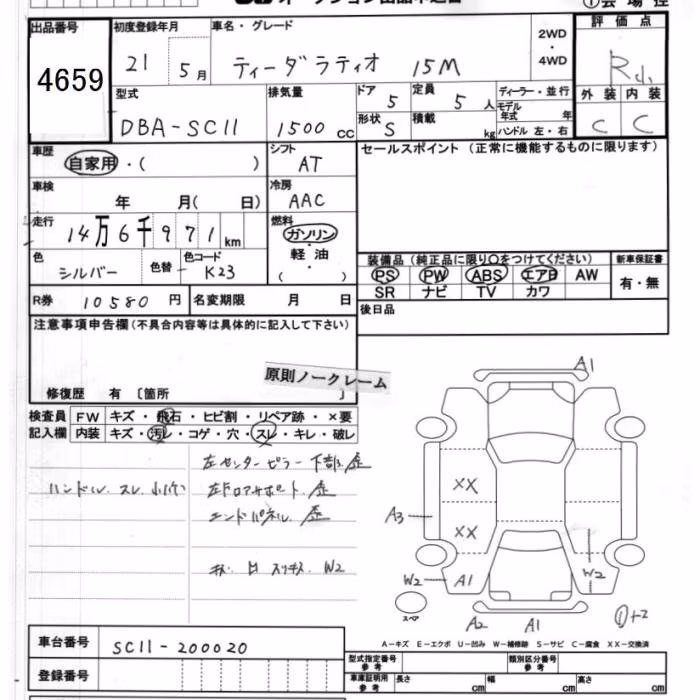 出品番号 4659
初度登録年月 21 5月
車名・グレード ティーダラティオ 15M
2WD・4WD
評価点
外装 C 内装 C
型式 DBA-SC11
排気量 1500 cc
ドア 5 定員 5 人
形状 S 積載 kg
ディーラー・並行
モデル年式 年
ハンドル 左・右
車歴 自家用・( )
シフト AT
セールスポイント (正常に機能するものに限ります)
車検 年 月( 日)
冷房 AAC
走行 14万6千971 km
燃料 ガソリン・軽油 ( )
色 シルバー 色替 色コード K23
装備品 (純正品に限り○をつけてください) 新車保証書
PS PW ABS エアB AW 有・無
SR ナビ TV カワ
R券 10580 円 名変期限 月 日
後日品
注意事項申告欄(不具合内容等は具体的に記入して下さい)
原則ノークレーム
修復歴 有 〔箇所 〕
検査員 FW キズ・飛石・ヒビ割・リペア跡・×要
記入欄 内装 キズ・汚レ・コゲ・穴・スレ・キレ・破レ
左センターピラー下部 歪
ハンドル スレ
エンドパネル 歪
W2
A1
XX
A3 XX
W2 A1 W2
スペア A2 A1
A-キズ E-エクボ U-凹み W-補修跡 S-サビ C-腐食 XX-交換済
車台番号 SC11-200020
登録番号
型式指定番号 参考 類別区分番号 参考
車庫証明用 参考 長さ cm 幅 cm 高さ cm